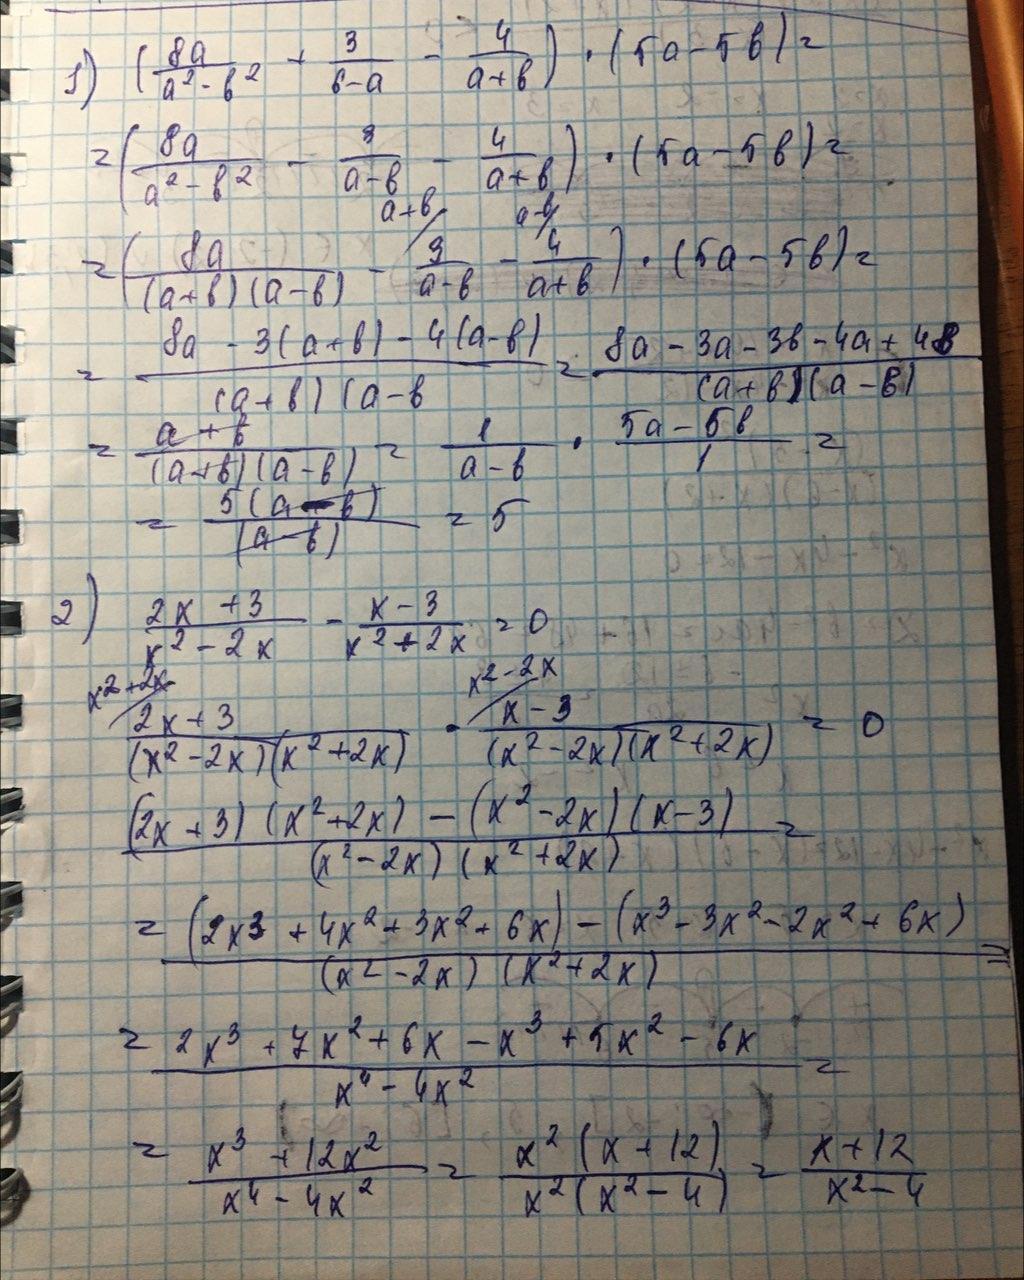 1) (8a/(a² - b²) + 3/(b-a) - 4/(a+b)) · (5a-5b) =
= (8a/(a² - b²) - 3/(a-b) - 4/(a+b)) · (5a-5b) =
a+b/ a-b/
= (8a/((a+b)(a-b)) - 3/(a-b) - 4/(a+b)) · (5a-5b) =
= (8a - 3(a+b) - 4(a-b))/((a+b)(a-b) = (8a - 3a - 3b - 4a + 4b)/((a+b)(a-b))
= (a+b)/((a+b)(a-b)) = 1/(a-b) · (5a-5b)/1 =
= 5(a-b)/(a-b) = 5
2) (2x+3)/(x²-2x) - (x-3)/(x²+2x) = 0
x²+2x/ x²-2x/
(2x+3)/((x²-2x)(x²+2x)) - (x-3)/((x²-2x)(x²+2x)) = 0
((2x+3)(x²+2x) - (x²-2x)(x-3))/((x²-2x)(x²+2x)) =
= ((2x³+4x²+3x²+6x) - (x³-3x²-2x²+6x))/((x²-2x)(x²+2x)) =
= (2x³+7x²+6x-x³+5x²-6x)/(x⁴-4x²) =
= (x³+12x²)/(x⁴-4x²) = x²(x+12)/(x²(x²-4)) = (x+12)/(x²-4)